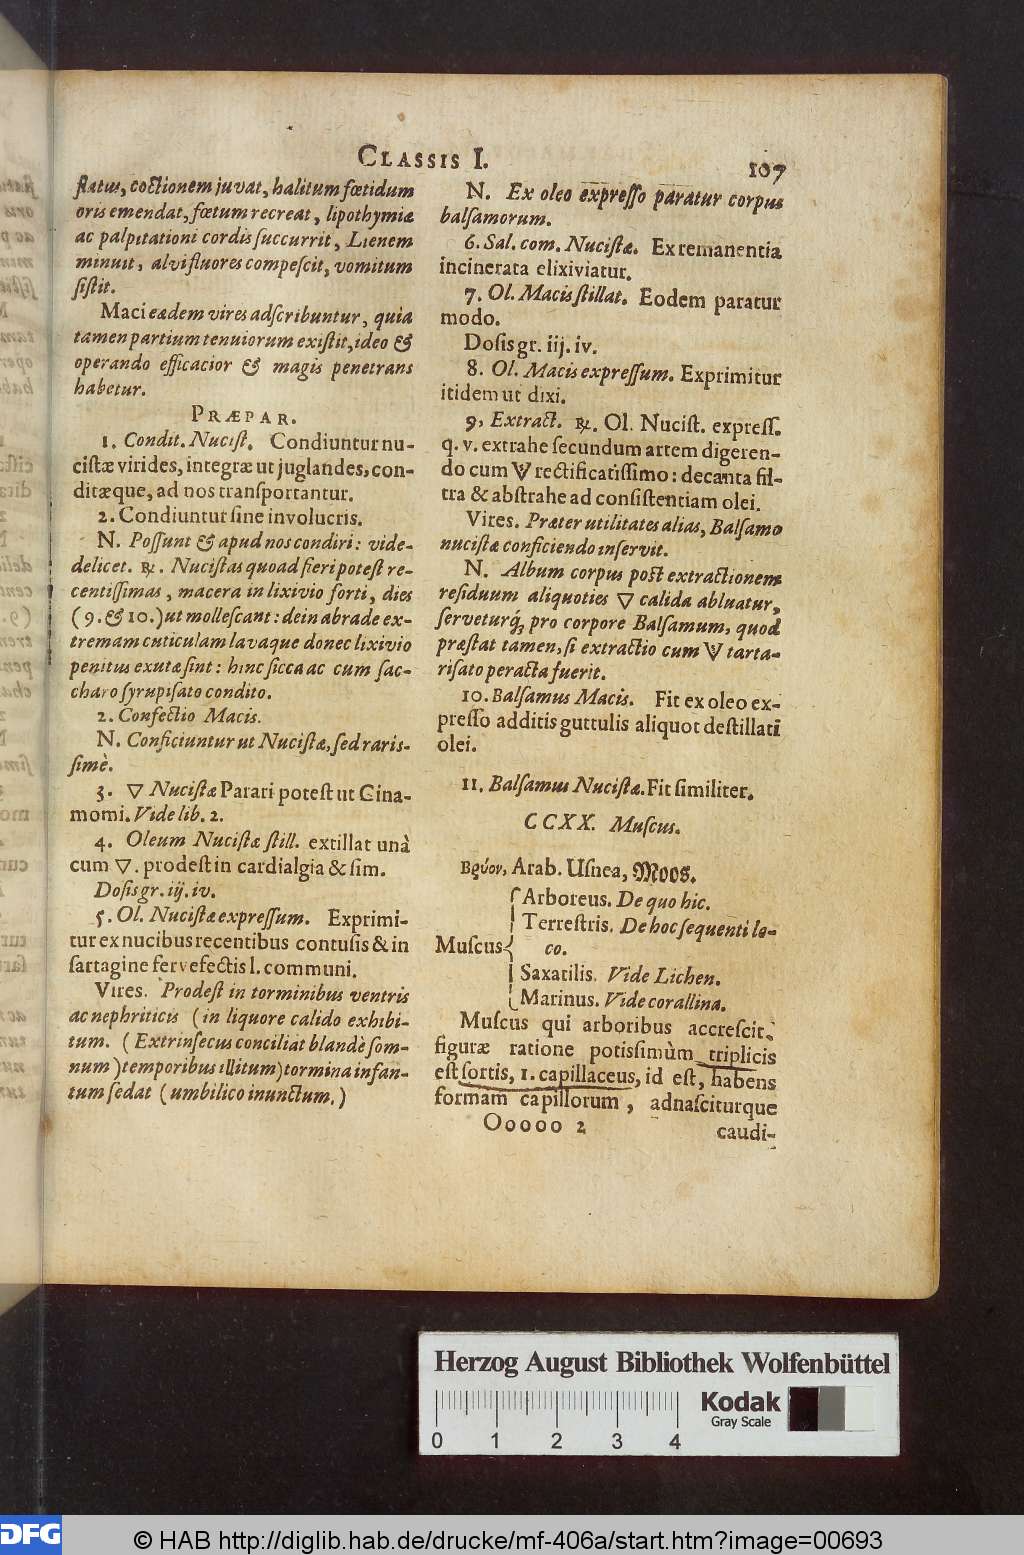 CLASSIS I.
107
flatus, coctionem juvat, halitum fœtidum
oris emendat, fœtum recreat, lipothymiæ
ac palpitationi cordis succurrit, Lienem
minuit, alvi fluores compescit, vomitum
sistit.
Maci eædem vires adscribuntur, quia
tamen partium tenuiorum existit, ideo &
operando efficacior & magis penetrans
habetur.
PRÆPAR.
1. Condit. Nucist. Condiuntur nu-
cistæ virides, integræ ut juglandes, con-
ditæque, ad nos transportantur.
2. Condiuntur sine involucris.
N. Possunt & apud nos condiri: vide-
delicet. ℞. Nucistas quoad fieri potest re-
centissimas, macera in lixivio forti, dies
(9. & 10.) ut mollescant: dein abrade ex-
tremam cuticulam lavaque donec lixivio
penitus exutæ sint: hinc sicca ac cum sac-
charo syrupisato condito.
2. Confectio Macis.
N. Conficiuntur ut Nucistæ, sed raris-
simè.
3. ▽ Nucistæ Parari potest ut Cina-
momi. Vide lib. 2.
4. Oleum Nucistæ still. extillat unà
cum ▽. prodest in cardialgia & sim.
Dosis gr. iij. iv.
5. Ol. Nucistæ expressum. Exprimi-
tur ex nucibus recentibus contusis & in
sartagine fervefectis l. communi.
Vires. Prodest in torminibus ventris
ac nephriticis (in liquore calido exhibi-
tum. (Extrinsecus conciliat blandè som-
num) temporibus illitum) tormina infan-
tum sedat (umbilico inunctum.)
N. Ex oleo expresso paratur corpus
balsamorum.
6. Sal. com. Nucistæ. Ex remanentia
incinerata elixiviatur.
7. Ol. Macis stillat. Eodem paratur
modo.
Dosis gr. iij. iv.
8. Ol. Macis expressum. Exprimitur
itidem ut dixi.
9, Extract. ℞. Ol. Nucist. express.
q. v. extrahe secundum artem digeren-
do cum V rectificatissimo: decanta fil-
tra & abstrahe ad consistentiam olei.
Vires. Præter utilitates alias, Balsamo
nucistæ conficiendo inservit.
N. Album corpus post extractionem
residuum aliquoties ▽ calida abluatur,
serveturq́; pro corpore Balsamum, quod
præstat tamen, si extractio cum V tarta-
risato peracta fuerit.
10. Balsamus Macis. Fit ex oleo ex-
presso additis guttulis aliquot destillati
olei.
11. Balsamus Nucistæ. Fit similiter.
CCXX. Muscus.
Βρύον, Arab. Usnea, Moos.
Arboreus. De quo hic.
Terrestris. De hoc sequenti lo-
Muscus { co.
Saxatilis. Vide Lichen.
Marinus. Vide corallina.
Muscus qui arboribus accrescit,
figuræ ratione potissimùm triplicis
est sortis, 1. capillaceus, id est, habens
formam capillorum, adnasciturque
Ooooo 2
caudi-
Herzog August Bibliothek Wolfenbüttel
Kodak
Gray Scale
0 1 2 3 4
DFG
© HAB http://diglib.hab.de/drucke/mf-406a/start.htm?image=00693